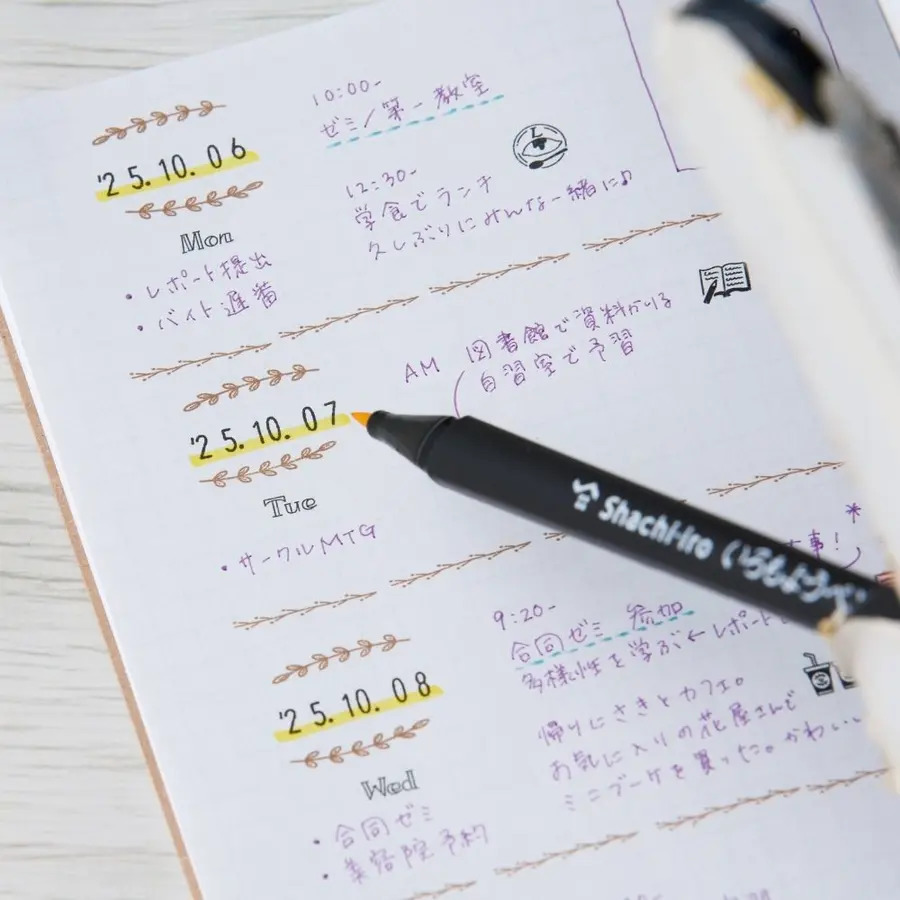 '25.10.06
Mon
・レポート提出
・バイト遅番
10:00-
ゼミ/第一教室
12:30-
学食でランチ
久しぶりにみんな一緒に♪
'25.10.07
Tue
・サークルMTG
AM 図書館で資料かりる
自習室で予習
*
大事!
Shachi-iro いろもようペン
'25.10.08
Wed
・合同ゼミ
・美容院予約
9:20-
合同ゼミ 参加
多様性を学ぶ←レポート
帰りにさきとカフェ。
お気に入りの花屋さんで
ミニブーケを買った。かわいい